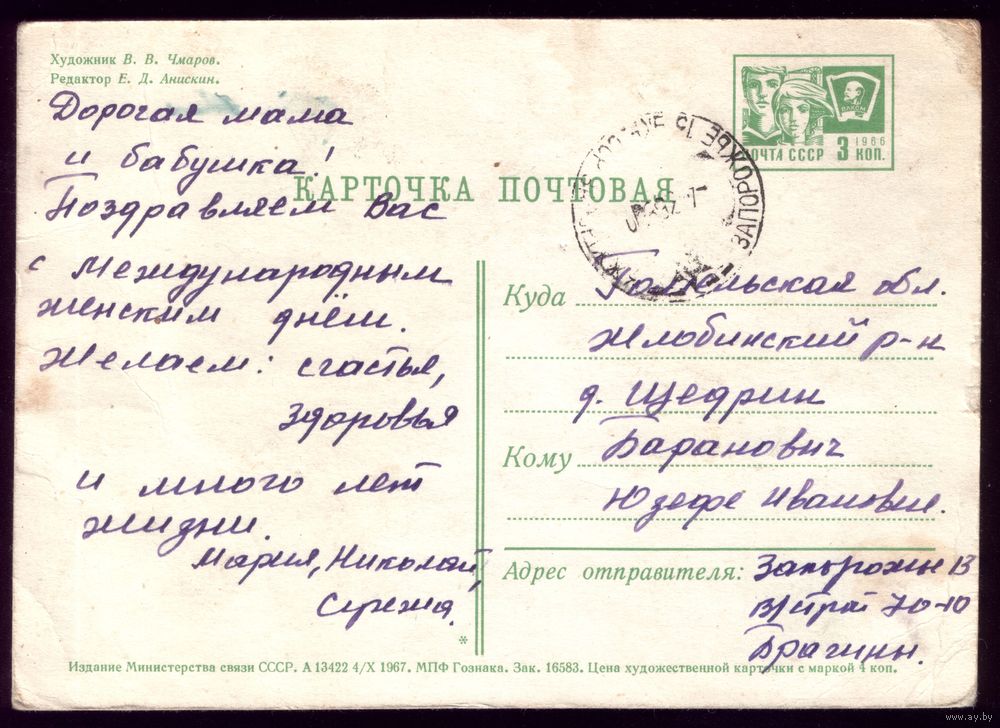 Художник В. В. Чмаров.
Редактор Е. Д. Анискин.
Дорогая мама
и бабушка!
Поздравляем Вас
с Международным
женским днём.
Желаем: счастья,
здоровья
и много лет
жизни.
Мария, Николай,
Сережа.
КАРТОЧКА ПОЧТОВАЯ
ВЛКСМ
1966
ПОЧТА СССР 3 КОП.
ЗАПОРОЖЬЕ 15
Куда Гомельская обл.
Жлобинский р-н
д. Щедрин
Кому Баранович
Юзефе Ивановне.
Адрес отправителя: Запорожье 13
70-10
Брагины.
*
Издание Министерства связи СССР. А 13422 4/X 1967. МПФ Гознака. Зак. 16583. Цена художественной карточки с маркой 4 коп.
www.ay.by